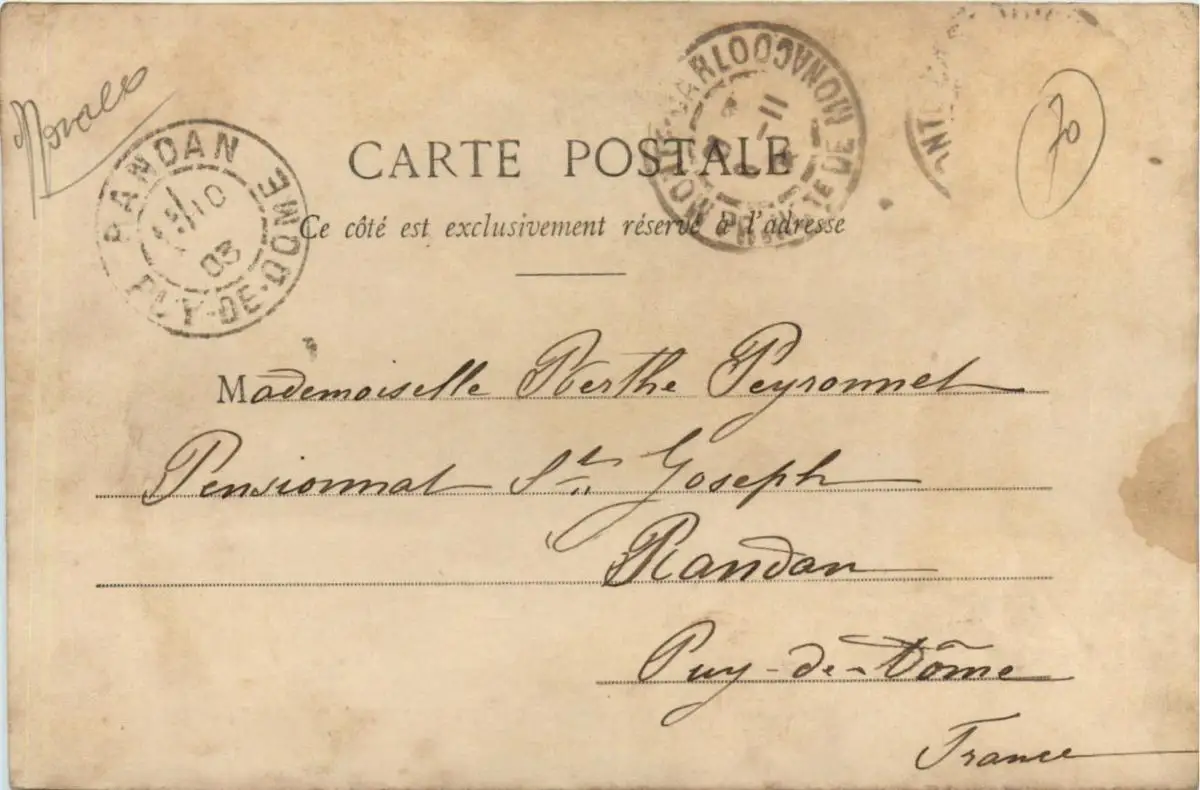 Monaco
70
CARTE POSTALE
Ce côté est exclusivement réservé à l'adresse
RANDAN
10
03
PUY-DE-DOME
PRTE DE MONACO
Mademoiselle Berthe Peyronnet
Pensionnat St. Joseph
Randan
Puy-de-Dôme
France